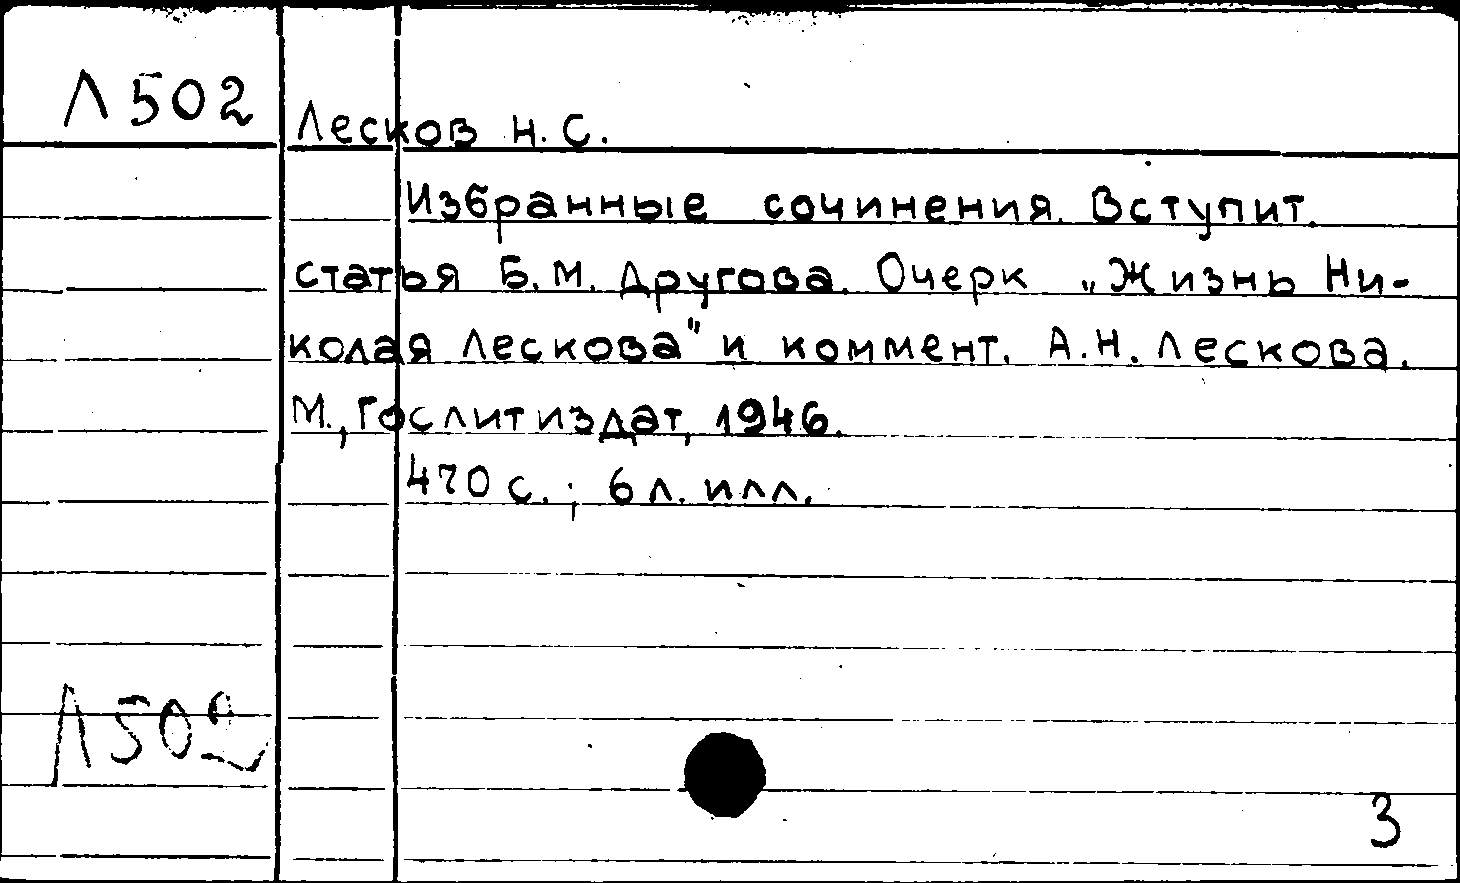 Л502
Лесков Н. С.
Избранные сочинения. Вступит.
статья Б. М. Другова. Очерк „Жизнь Ни-
колая Лескова" и коммент. А. Н. Лескова.
М., Гослитиздат, 1946.
470 с. ; 6 л. илл.
Л502
3